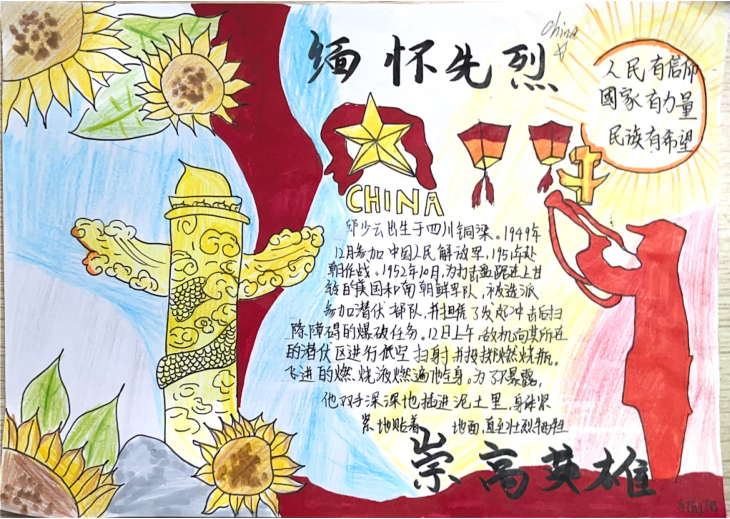 缅怀先烈
China
人民有信仰
國家有力量
民族有希望
CHINA
邱少云出生于四川铜梁。1949年
12月参加中国人民解放军，1951年赴
朝作战。1952年10月，为打击盘踞进上甘
的美国和南朝鲜军队，被选派
参加潜伏部队，并担负了发起冲击后扫
除障碍的爆破任务。12日上午，敌机向其所在
的潜伏区进行低空扫射并投掷燃烧瓶。
飞迸的燃烧液燃遍他全身。为了不暴露，
他双手深深地插进泥土里，身体紧
紧地贴着 地面，直至壮烈牺牲
崇高英雄